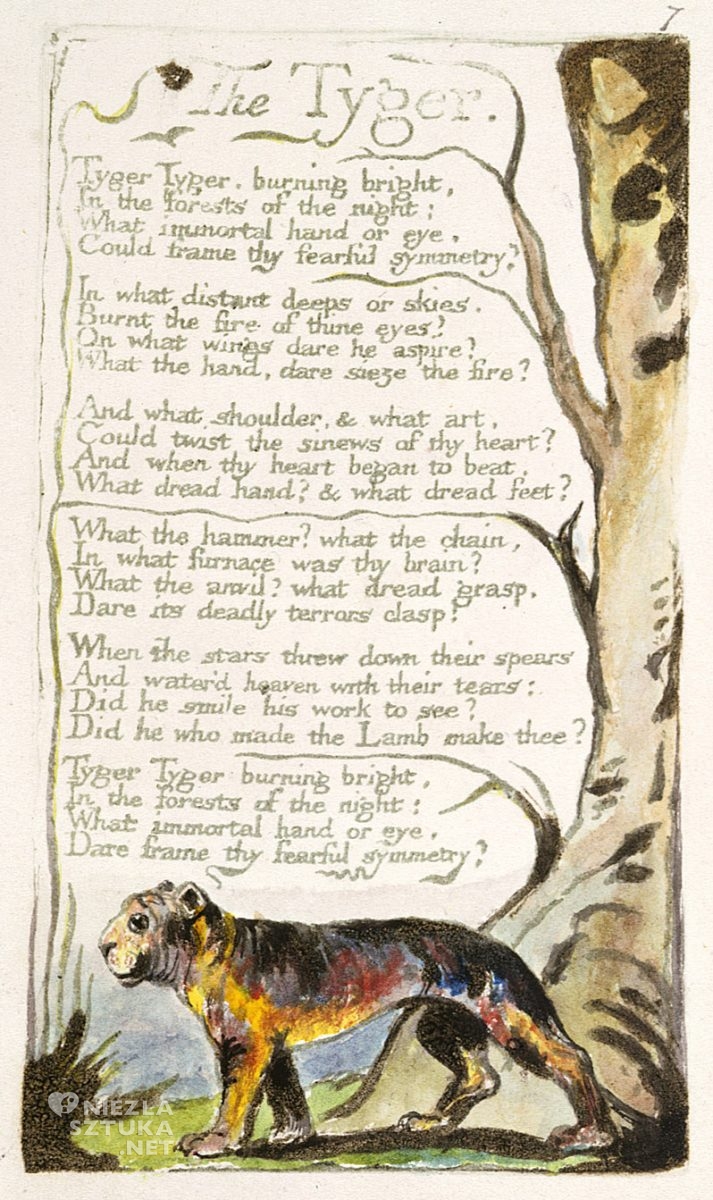 7
The Tyger.
Tyger Tyger, burning bright,
In the forests of the night;
What immortal hand or eye,
Could frame thy fearful symmetry?
In what distant deeps or skies.
Burnt the fire of thine eyes?
On what wings dare he aspire?
What the hand, dare sieze the fire?
And what shoulder, & what art,
Could twist the sinews of thy heart?
And when thy heart began to beat,
What dread hand? & what dread feet?
What the hammer? what the chain,
In what furnace was thy brain?
What the anvil? what dread grasp,
Dare its deadly terrors clasp!
When the stars threw down their spears
And water'd heaven with their tears:
Did he smile his work to see?
Did he who made the Lamb make thee?
Tyger Tyger burning bright,
In the forests of the night:
What immortal hand or eye,
Dare frame thy fearful symmetry?
NIEZŁA
SZTUKA
.NET